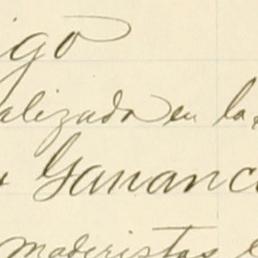 igo
alizada en la
Gananc
maderistas